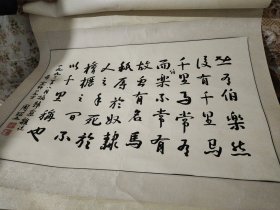 世有伯樂然
後有千里馬
千里馬常有
而伯樂不常有
故雖有名馬
祇辱於奴隸
人之手死於
槽櫪之不
以千里稱也